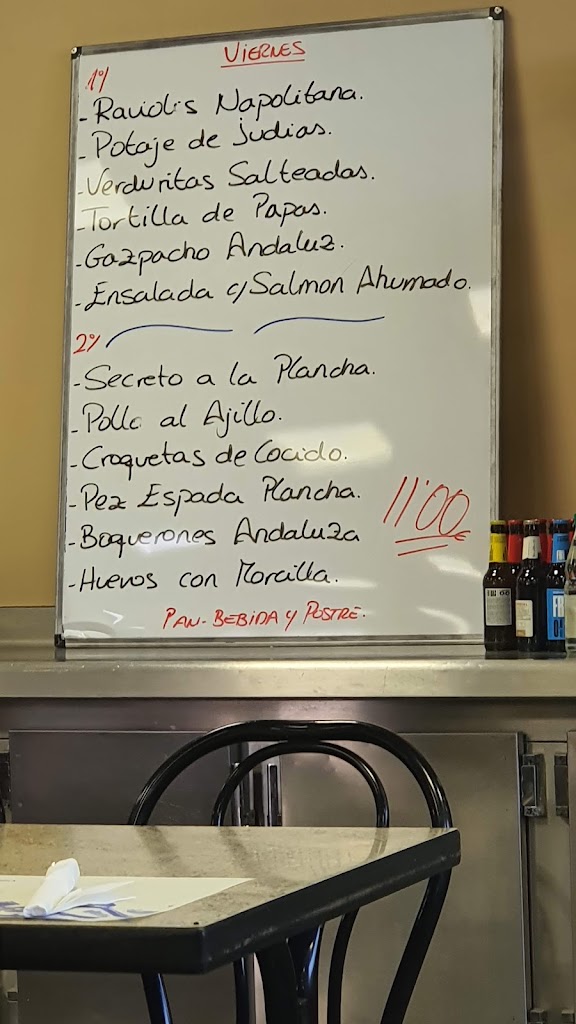 VIERNES
1º/
- Raviolis Napolitana.
- Potaje de judias.
- Verduritas Salteadas.
- Tortilla de Papas.
- Gazpacho Andaluz.
- Ensalada c/ Salmon Ahumado.
2º/
- Secreto a la Plancha.
- Pollo al Ajillo.
- Croquetas de Cocido.
- Pez Espada Plancha.
- Boquerones Andaluza
- Huevos con Morcilla.
11'00€
PAN-BEBIDA Y POSTRE.